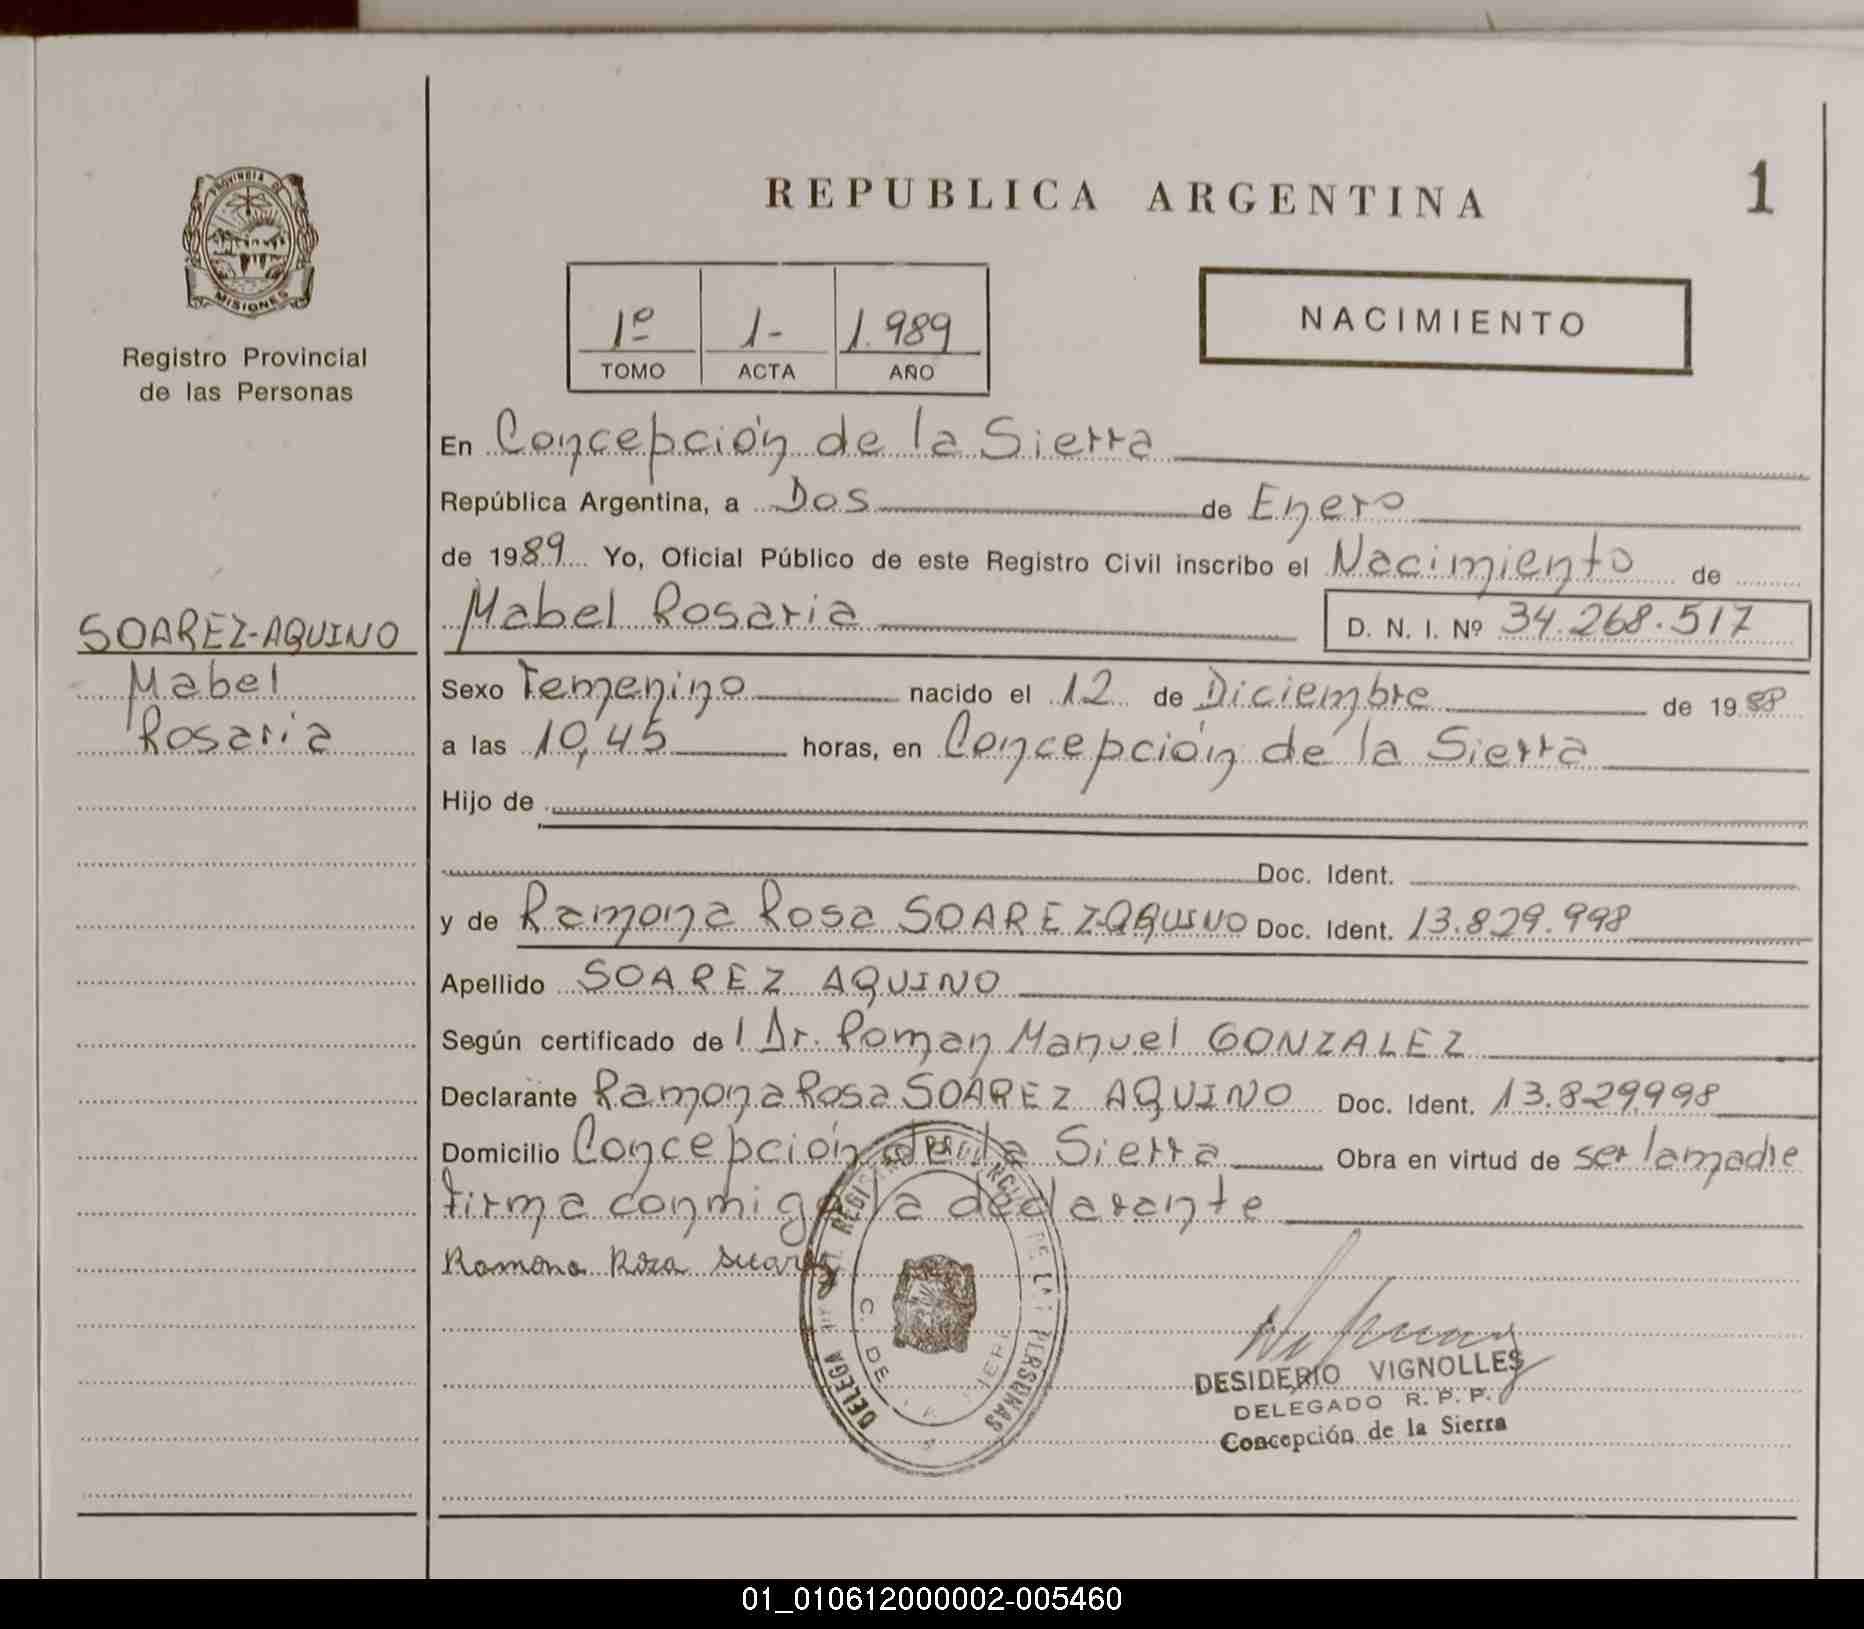 PROVINCIA DE
MISIONES
Registro Provincial
de las Personas
SOAREZ-AQUINO
Mabel
Rosaria
REPUBLICA ARGENTINA
1
NACIMIENTO
1º 1- 1.989
TOMO ACTA AÑO
En Concepción de la Sierra
República Argentina, a Dos de Enero
de 1989 Yo, Oficial Público de este Registro Civil inscribo el Nacimiento de
Mabel Rosaria D. N. I. Nº 34.268.517
Sexo Femenino nacido el 12 de Diciembre de 1988
a las 10,45 horas, en Concepción de la Sierra
Hijo de
Doc. Ident.
y de Ramona Rosa SOAREZ-AQUINO Doc. Ident. 13.829.998
Apellido SOAREZ AQUINO
Según certificado de l Dr. Roman Manuel GONZALEZ
Declarante Ramona Rosa SOAREZ AQUINO Doc. Ident. 13.829998
Domicilio Concepción de la Sierra Obra en virtud de ser la madre
firma conmigo la declarante
Ramona Rosa Suarez
DESIDERIO VIGNOLLES
DELEGADO R. P. P.
Concepción de la Sierra
01_010612000002-005460